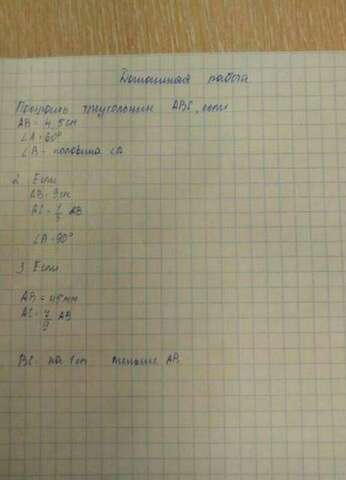 Домашная работа
Построить треугольник ABC, если
AB = 4,5 см
∠A = 60°
∠B = половина ∠A
2 Если
AB = 9 см
AC = 1/3 AB
∠A = 90°
3 Если
AB = 45 мм
AC = 7/9 AB
BC на 1 см меньше AB